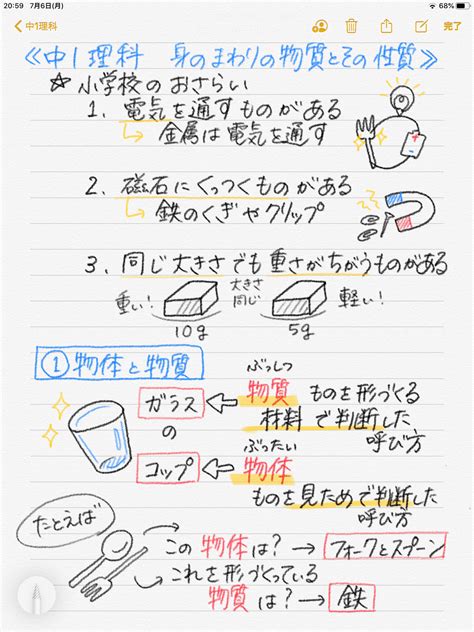 20:59 7月6日(月) 68%
中1理科 完了
《中1理科 身のまわりの物質とその性質》
☆小学校のおさらい
1、電気を通すものがある
金属は電気を通す
2、磁石にくっつくものがある
鉄のくぎやクリップ
3、同じ大きさでも重さがちがうものがある
重い! 大きさ同じ 軽い!
10g 5g
①物体と物質
ぶっしつ
ガラス ← 物質 ものを形づくる
の 材料で判断した
呼び方
ぶったい
コップ ← 物体
ものを見ためで判断した
呼び方
たとえば
この物体は? → フォークとスプーン
これを形づくっている
物質は? → 鉄